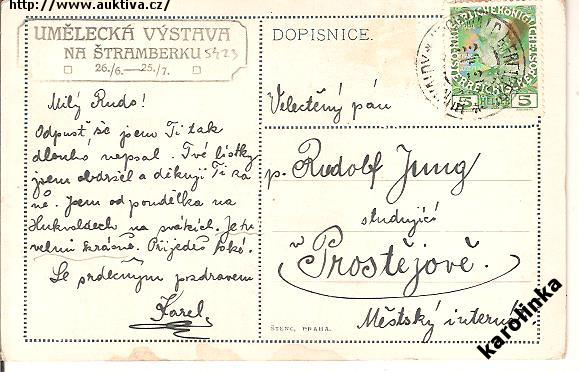 http://www.auktiva.cz/
UMĚLECKÁ VÝSTAVA
NA ŠTRAMBERKU
26./6.—25./7.
5423
Milý Rudo!
Odpusť že jsem Ti tak
dlouho nepsal. Tvé lístky
jsem obdržel a děkuji Ti za
ně. Jsem od pondělka na
Hukvaldech na svátcích. Je tu
velmi krásně. Přijedeš také.
Se srdečným pozdravem
Karel
DOPISNICE.
5
HELLER
5
Velectěný pán
p. Rudolf Jung
studující
v Prostějově.
Městský internát.
ŠTENC, PRAHA.
karolinka